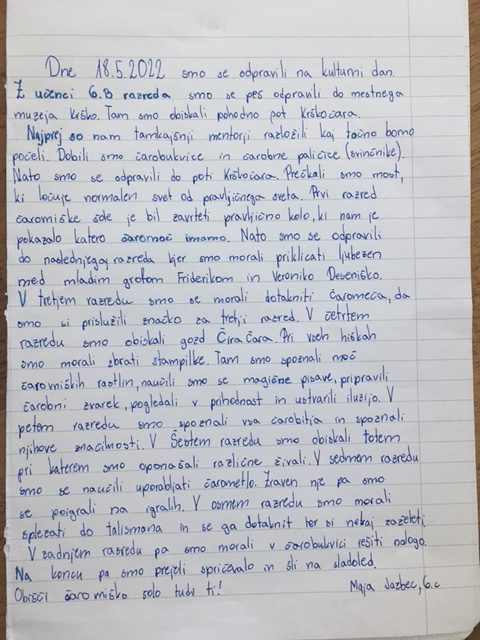 Dne 18.5.2022 smo se odpravili na kulturni dan.
Z učenci 6.B razreda smo se peš odpravili do mestnega
muzeja Krško. Tam smo obiskali pohodno pot Krškočara.
Najprej so nam tamkajšnji mentorji razložili kaj točno bomo
počeli. Dobili smo čarobukvice in čarobne paličice (svinčnike).
Nato smo se odpravili do poti Krškočara. Prečkali smo most,
ki ločuje normalen svet od pravljičnega sveta. Prvi razred
čarovniške šole je bil zavrteti pravljično kolo, ki nam je
pokazalo katero čaromoč imamo. Nato smo se odpravili
do naslednjega razreda kjer smo morali priklicati ljubezen
med mladim grofom Friderikom in Veroniko Deseniško.
V tretjem razredu smo se morali dotakniti čaromeča, da
smo si prislužili značko za tretji razred. V četrtem
razredu smo obiskali gozd Čira Čara. Pri vseh hiškah
smo morali zbrati štampilke. Tam smo spoznali moč
čarovniških rastlin, naučili smo se magične pisave, pripravili
čarobni zvarek, pogledali v prihodnost in ustvarili iluzijo. V
petem razredu smo spoznali vsa čarobitja in spoznali
njihove značilnosti. V Šestem razredu smo obiskali totem
pri katerem smo oponašali različne živali. V sedmem razredu
smo se naučili uporabljati čarometlo. Zraven nje pa smo
se poigrali na igralih. V osmem razredu smo morali
splezati do talismana in se ga dotaknit ter si nekaj zaželeti.
V zadnjem razredu pa smo morali v čarobukvici rešiti nalogo.
Na koncu pa smo prejeli spričevalo in šli na sladoled.
Obišči čarovniško šolo tudi ti!
Maja Jazbec, 6.c